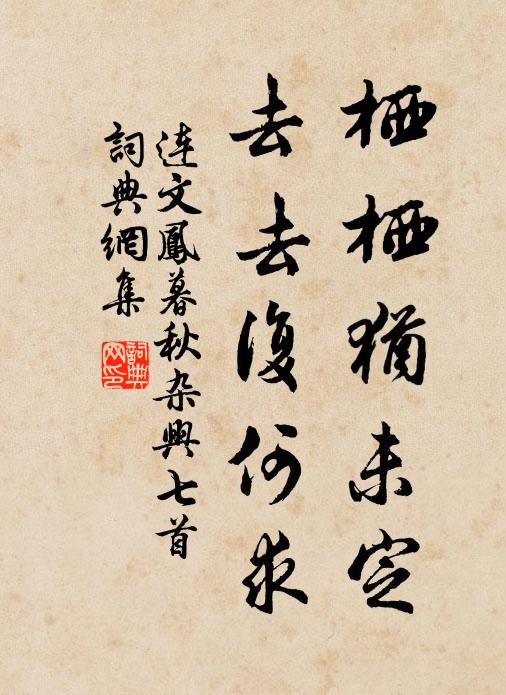 栖栖猶未定
去去復何求
連文鳳暮秋杂興七首
詞典網集
詞典
网印